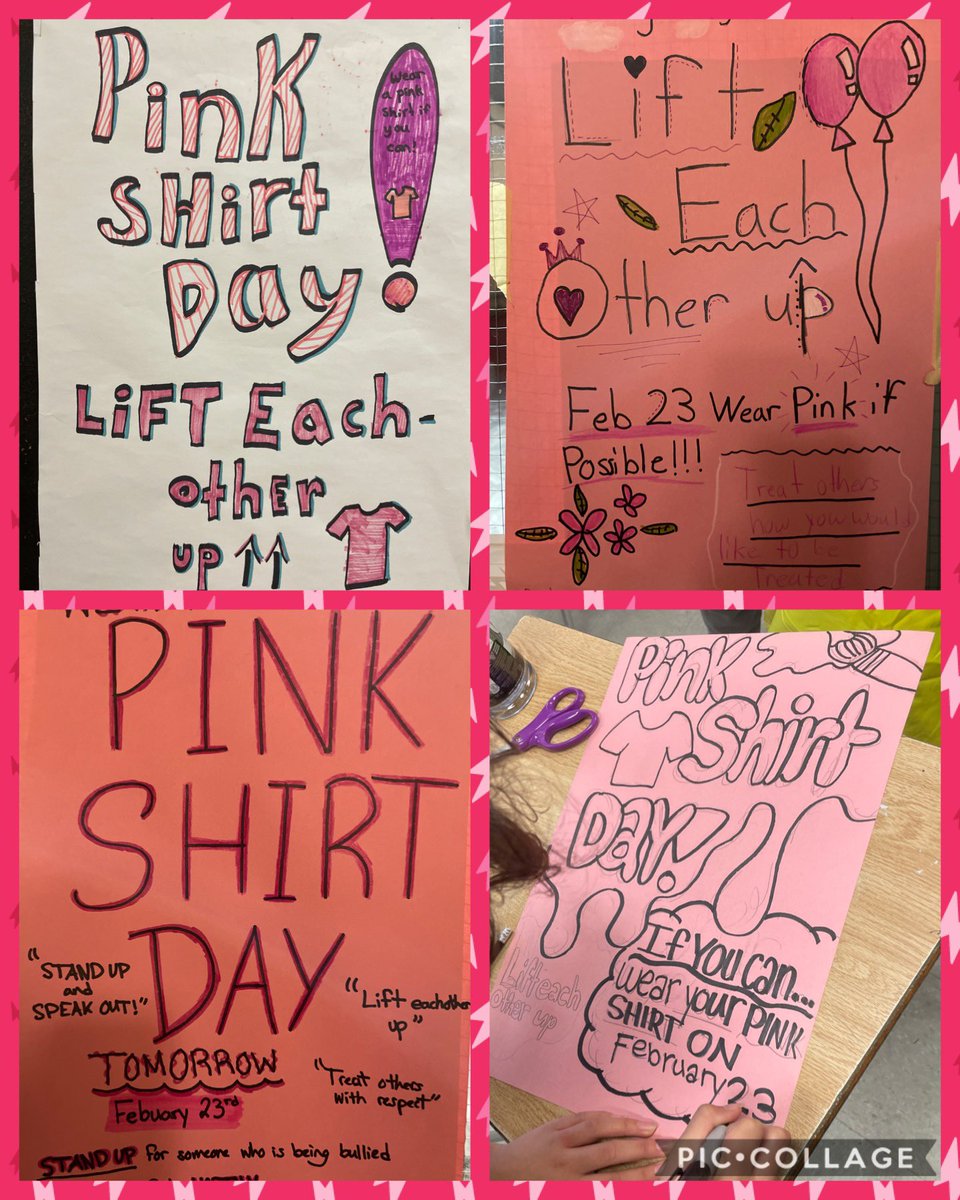 Pink
Shirt
Day
Wear
a pink
shirt if
you
can!
Lift Each-
other
up
Lift
Each
Other up
Feb 23 Wear Pink if
Possible!!!
Treat others
how you would
like to be
Treated
PINK
SHIRT
DAY
"STAND UP
and
SPEAK OUT!"
"Lift eachother
up"
TOMORROW
Febuary 23rd
"Treat others
with respect"
STAND UP for someone who is being bullied
Pink
Shirt
Day!
If you can...
wear your PINK
SHIRT ON
February 23
Lift each
other up
PIC•COLLAGE